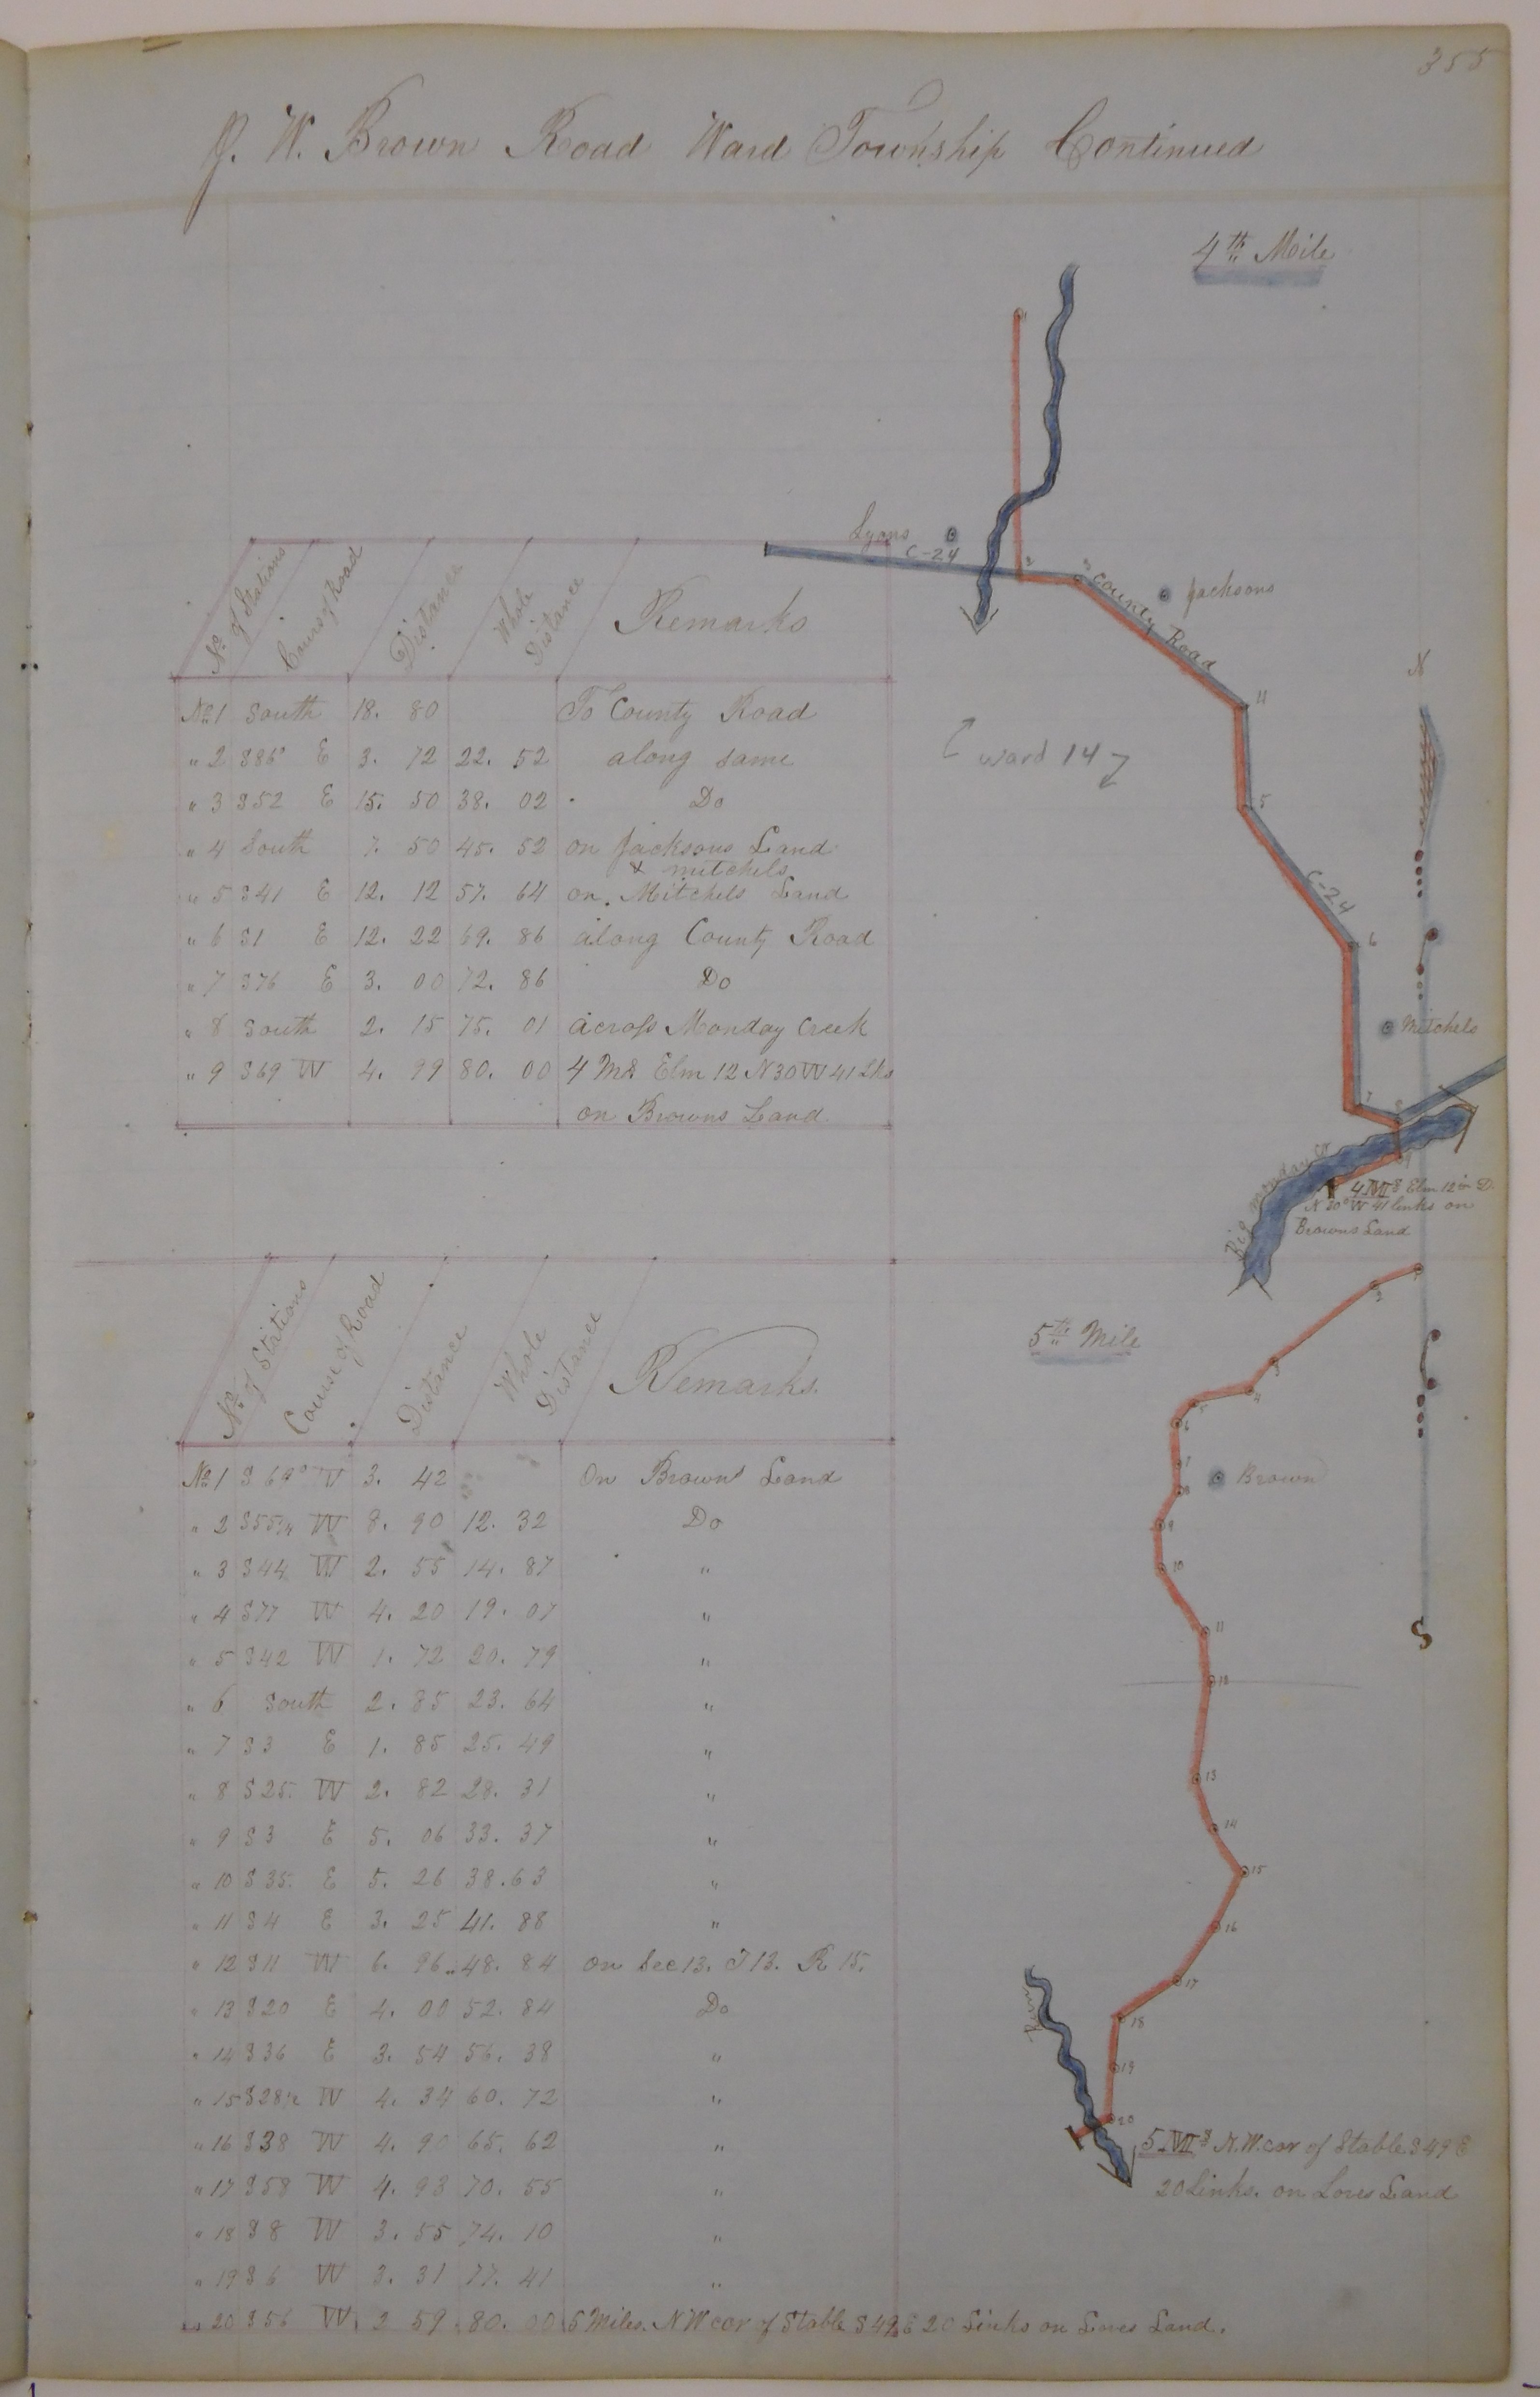 355
J. W. Brown Road Ward Township Continued
4th Mile
Lyons
C-24
2
3
County Road
Jacksons
11
5
C-24
6
Mitchels
7
8
9
N
Ward 14
Big Monday Cr
4 MS Elm 12 in D.
N 30° W 41 links on
Browns Land
No. of Stations Cours of Road Distance Whole Distance Remarks
No 1 South 18. 80 To County Road
" 2 S86° E 3. 72 22. 52 along same
" 3 S52 E 15. 50 38. 02 Do
" 4 South 7. 50 45. 52 on Jacksons Land
& mitchels
" 5 S41 E 12. 12 57. 64 on Mitchels Land
" 6 S1 E 12. 22 69. 86 along County Road
" 7 S76 E 3. 00 72. 86 Do
" 8 South 2. 15 75. 01 across Monday Creek
" 9 S69 W 4. 99 80. 00 4 Ms Elm 12 N30W 41 Lks
on Browns Land.
5th Mile
No. of Stations Course of Road Distance Whole Distance Remarks.
No 1 S 69° W 3. 42 On Browns Land
" 2 S55 3/4 W 8. 90 12. 32 Do
" 3 S44 W 2. 55 14. 87 "
" 4 S77 W 4. 20 19. 07 "
" 5 S42 W 1. 72 20. 79 "
" 6 South 2. 85 23. 64 "
" 7 S3 E 1. 85 25. 49 "
" 8 S25. W 2. 82 28. 31 "
" 9 S3 E 5. 06 33. 37 "
" 10 S35. E 5. 26 38. 63 "
" 11 S4 E 3. 25 41. 88 "
" 12 S11 W 6. 96 48. 84 on Sec 13. T 13. R 15.
" 13 S20 E 4. 00 52. 84 Do
" 14 S36 E 3. 54 56. 38 "
" 15 S28 1/2 W 4. 34 60. 72 "
" 16 S38 W 4. 90 65. 62 "
" 17 S58 W 4. 93 70. 55 "
" 18 S8 W 3. 55 74. 10 "
" 19 S6 W 3. 31 77. 41 "
" 20 S56 W 2 59 80. 00 5 Miles. N W cor of Stable S 49 E 20 Links on Loves Land.
2
3
4
5
6
7
8
Brown
9
10
11
12
S
13
14
15
16
17
18
Run
19
20
5 MS N.W. cor of Stable S 49 E
20 Links. on Loves Land